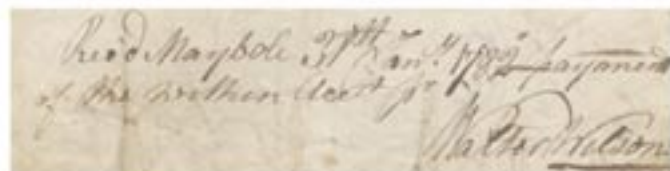 Rec'd Maybole Jany 1782 payment
of the within Acctt pr
Walter Wilson